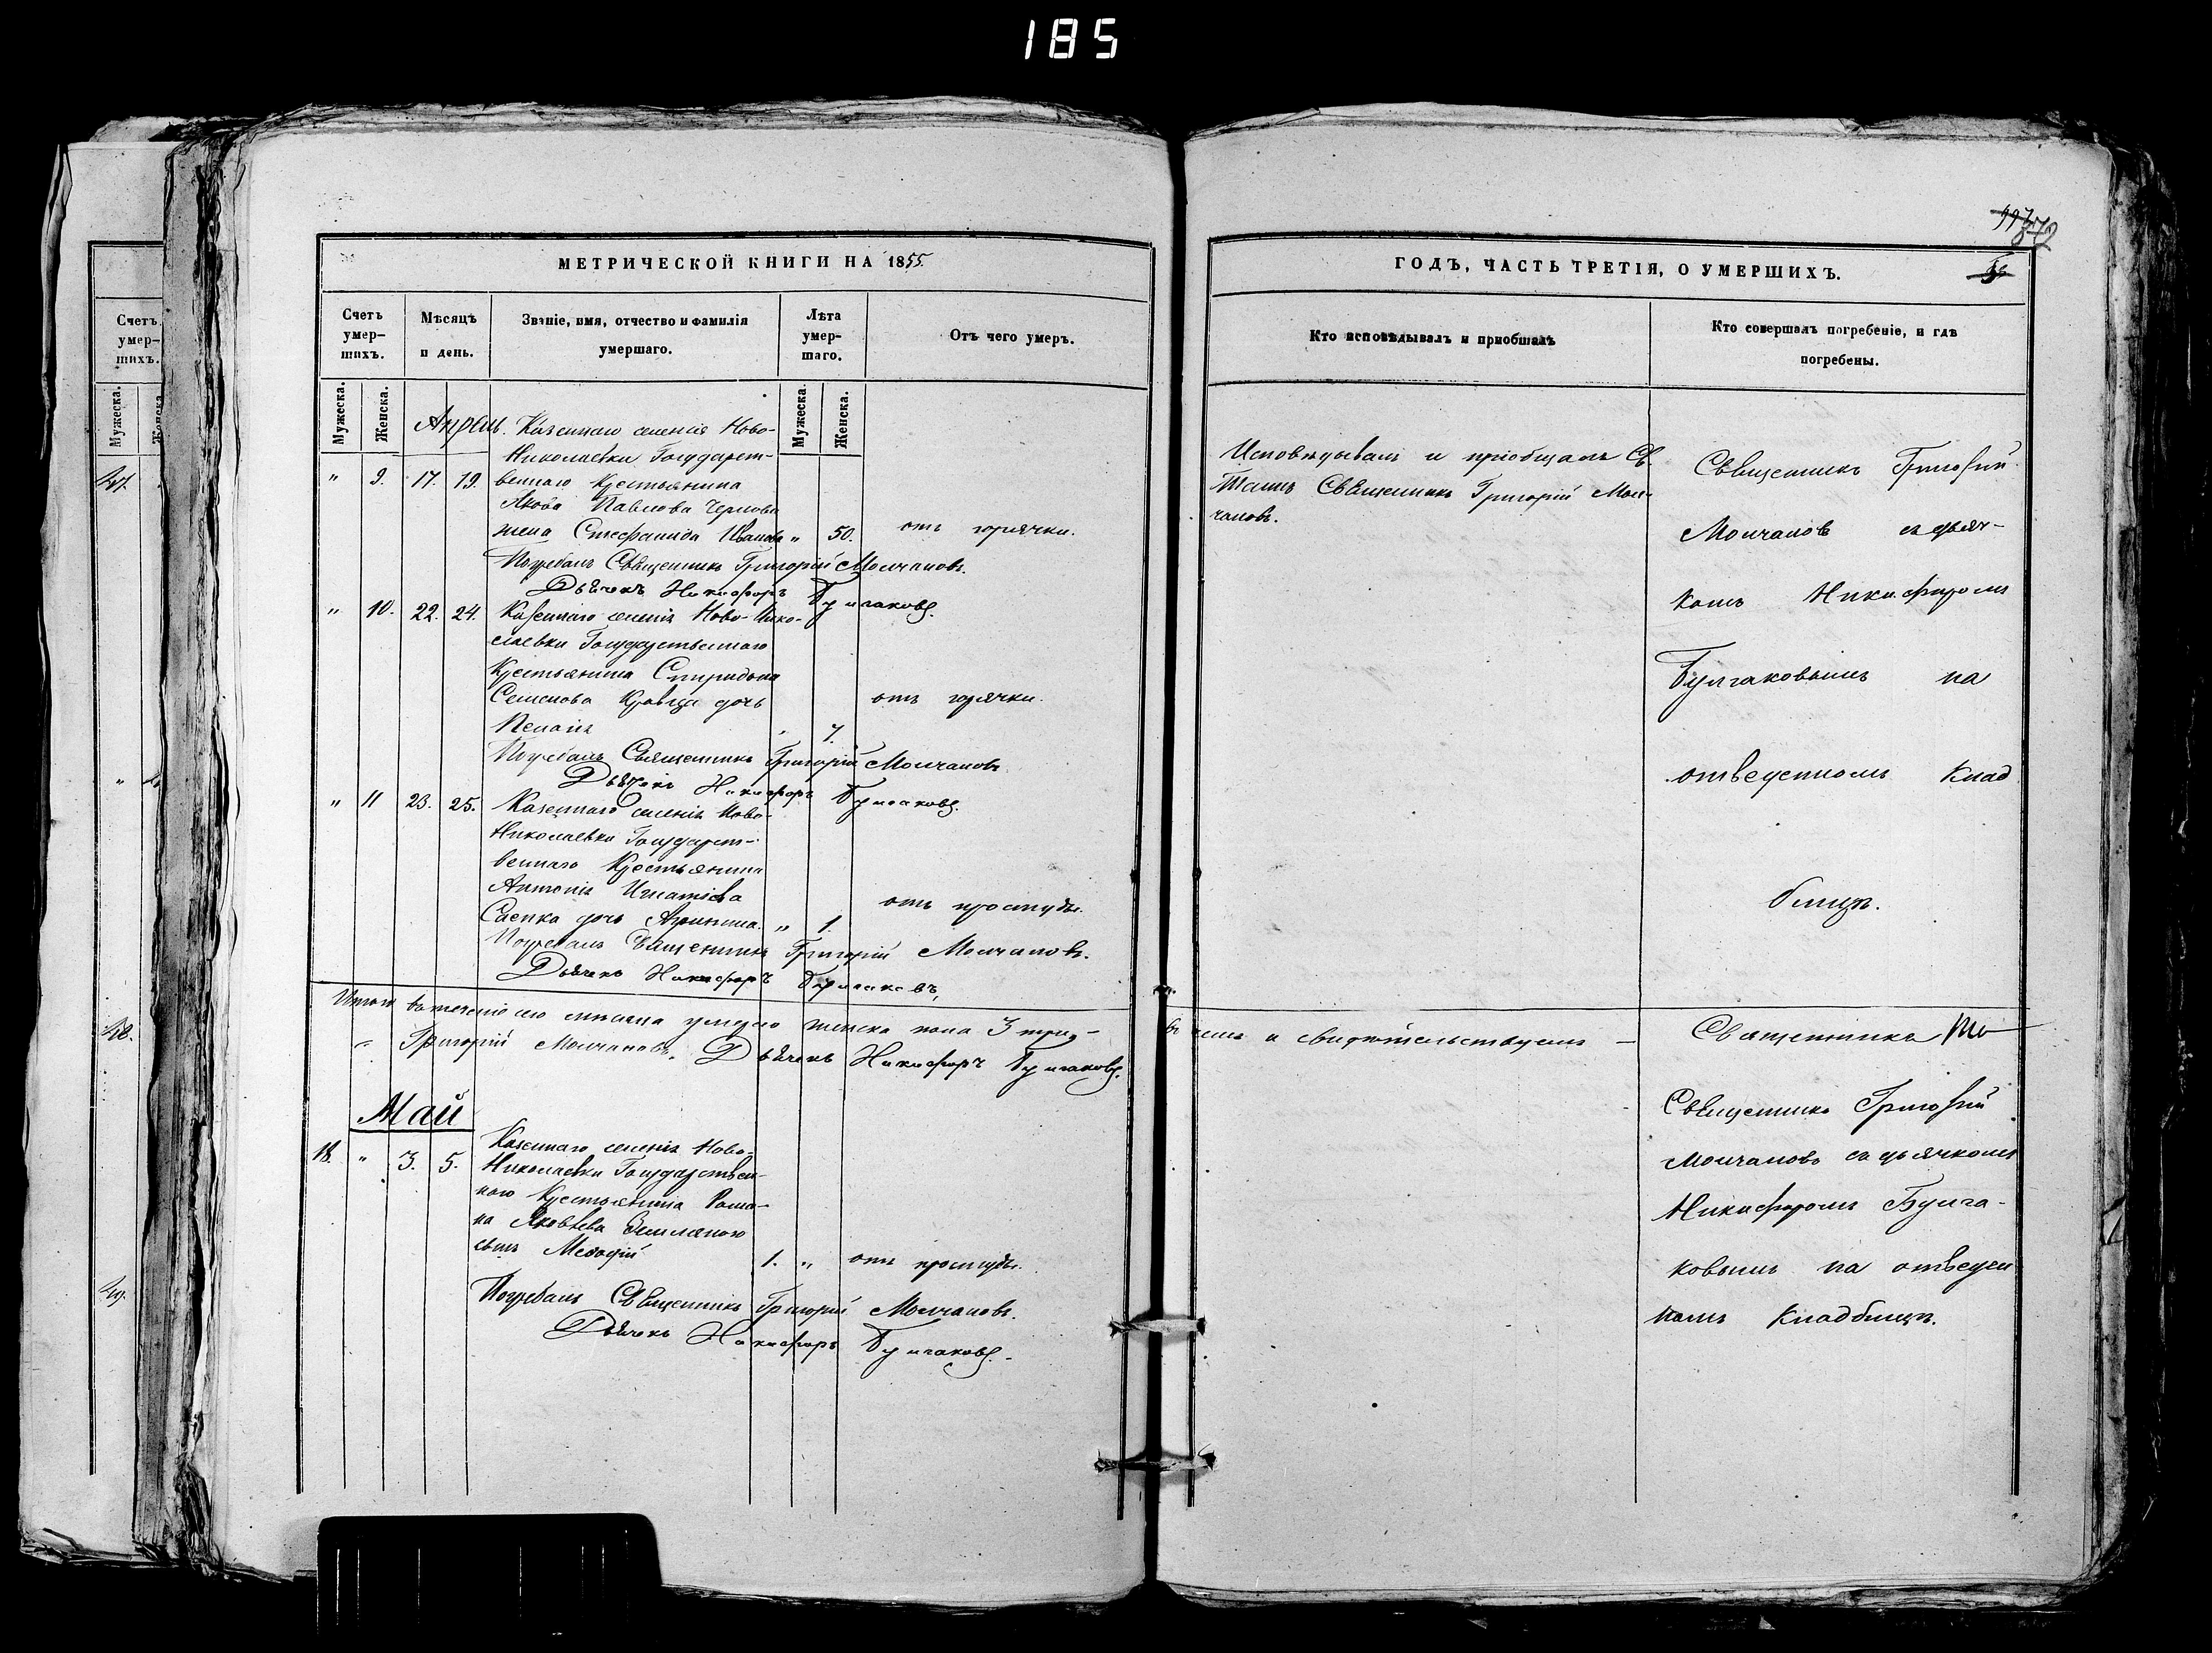 185
372
МЕТРИЧЕСКОЙ КНИГИ НА 1855.
Счетъ умер-
шихъ.
Мѣсяцъ
и день.
Званіе, имя, отчество и фамилія
умершаго.
Лѣта
умер-
шаго.
Отъ чего умеръ.
Мужеска.
Женска.
Мужеска.
Женска.
Апрѣль.
Казеннаго селенія Ново-
Николаевки Государст-
" 9. 17. 19. веннаго Крестьянина
Якова Павлова
жена Стефанида Иванова " 50. отъ горячки.
Погребалъ Священникъ Григорій Молчановъ.
Дьячекъ Никифоръ Булгаковъ.
" 10. 22. 24. Казеннаго селенія Ново-Нико-
лаевки Государственнаго
Крестьянина Спиридона
Семенова Кравца дочь отъ горячки.
" 7.
Погребалъ Священникъ Григорій Молчановъ
Дьячекъ Никифоръ Булгаковъ.
" 11 23. 25. Казеннаго селенія Ново-
Николаевки Государст-
веннаго Крестьянина
Антонія Игнатіева отъ простуды.
дочь " 1.
Погребалъ Священникъ Григорій Молчановъ.
Дьячекъ Никифоръ Булгаковъ,
Итого въ теченіе сего мѣсяца умерло женска пола 3 три,-
Григорій Молчановъ. Дьячекъ Никифоръ Булгаковъ.
Май
Казеннаго селенія Ново-
18. " 3. 5. Николаевки Государствен-
наго Крестьянина Рома-
на Яковлева
сынъ Меѳодій 1. " отъ простуды.
Погребалъ Священникъ Григорій Молчановъ.
Дьячекъ Никифоръ Булгаковъ.-
ГОДЪ, ЧАСТЬ ТРЕТІЯ, О УМЕРШИХЪ.
Кто исповѣдывалъ и приобщалъ
Кто совершалъ погребеніе, и гдѣ
погребены.
Исповѣдывалъ и пріобщалъ Св.
Таинъ Священникъ Григорій Мол-
чановъ.
Священникъ Григорій
Молчановъ съ дьяч-
комъ Никифоромъ
Булгаковымъ на
отведенномъ Клад
бищѣ.
и свидѣтельствуемъ – Священникъ
Священникъ Григорій
Молчановъ съ дьячкомъ
Никифоромъ Булга-
ковымъ на отведен
номъ Кладбищѣ.
Счетъ
умер-
шихъ.
Мужеска.
Женска
47.
48.
49.